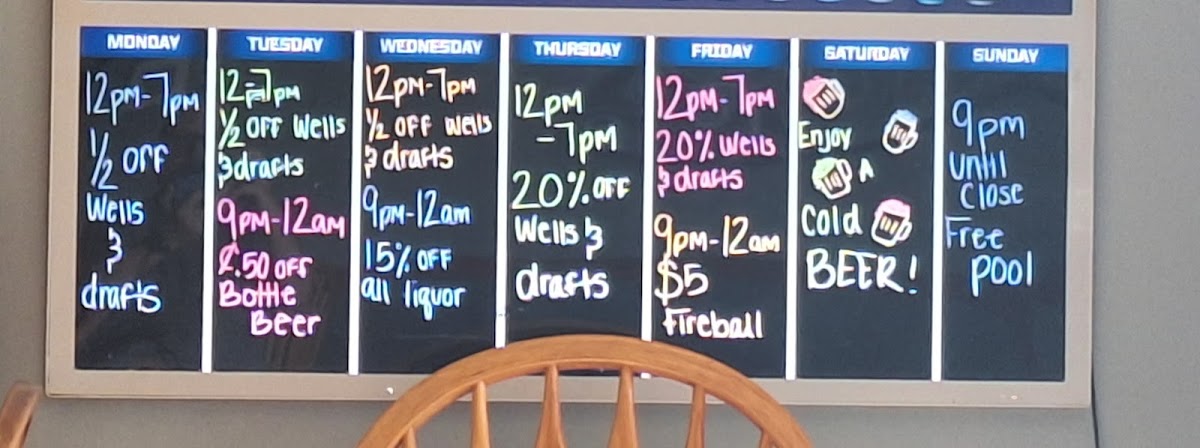 MONDAY
12pm-7pm
1/2 OFF
Wells
&
drafts
TUESDAY
12-7pm
1/2 OFF Wells
& drafts
9pm-12am
.50 OFF
Bottle
Beer
WEDNESDAY
12pm-7pm
1/2 OFF Wells
& drafts
9pm-12am
15% OFF
all liquor
THURSDAY
12pm
-7pm
20% OFF
Wells &
drafts
FRIDAY
12pm-7pm
20% Wells
& drafts
9pm-12am
$5
Fireball
SATURDAY
Enjoy
A
Cold
BEER!
SUNDAY
9pm
Until
Close
Free
pool